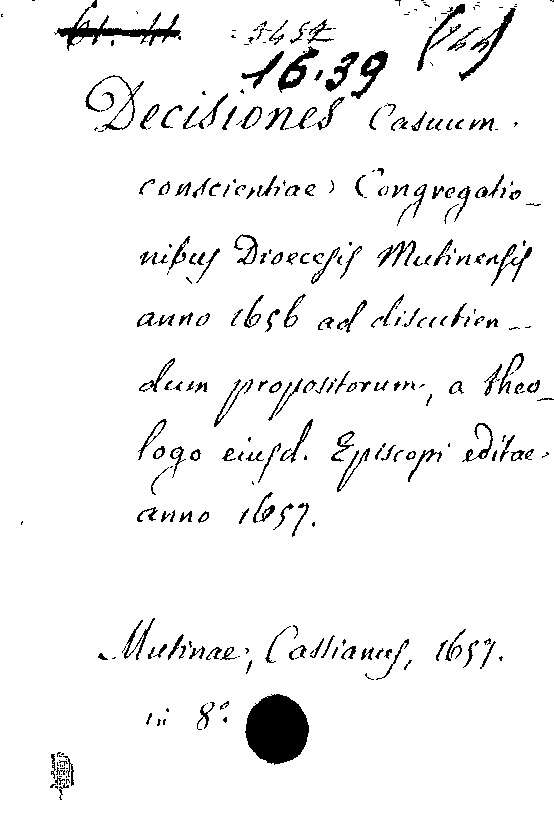 16.39
Decisiones Casuum
conscientiae Congregatio_
nibus Dioecesis Mutinensis
anno 1656 ad discutien_
dum propositorum, a theo_
logo eiusd. Episcopi editae
anno 1657.
Mutinae, Cassianus, 1657.
in 8°.